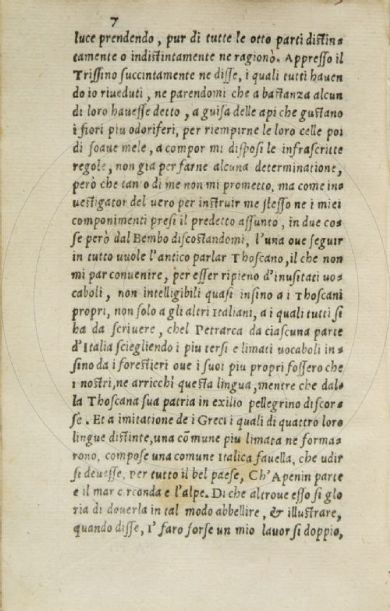 7
luce prendendo, pur di tutte le otto parti distin=
tamente o indistintamente ne ragionò. Appresso il
Trissino succintamente ne disse, i quali tutti hauen
do io rieduti, ne parendomi che a bastanza alcun
di loro hauesse detto, a guisa delle api che gustano
i fiori piu odoriferi, per riempirne le loro celle poi
di soaue mele, a compor mi disposi le infrascritte
regole, non gia per farne alcuna determinatione,
però che tanto di me non mi prometto, ma come in=
uestigator del uero per instruir me stesso ne i miei
componimenti presi il predetto assunto, in due co=
se però dal Bembo discostandomi, l'una oue seguir
in tutto uuole l'antico parlar Thoscano, il che non
mi par conuenire, per esser ripieno d'inusitati uo=
caboli, non intelligibili quasi insino a i Thoscani
propri, non solo a gli altri Italiani, a i quali tutti si
ha da scriuere, chel Petrarca da ciascuna parte
d'Italia sciegliendo i piu tersi e limati uocaboli in=
sino da i forestieri oue i suoi piu propri fossero che
i nostri, ne arricchì questa lingua, mentre che dal=
la Thoscana sua patria in exilio pellegrino discor=
se. Et a imitatione de i Greci i quali di quattro loro
lingue distinte, una cõmune piu limata ne forma=
rono, compose una comune Italica fauella, che udir
si deuesse, per tutto il bel paese, Ch'Apenin parte
e il mar circonda e l'alpe. Di che altroue esso si glo
ria di douerla in tal modo abbellire, & illustrare,
quando disse, I' faro forse un mio lauor si doppio,